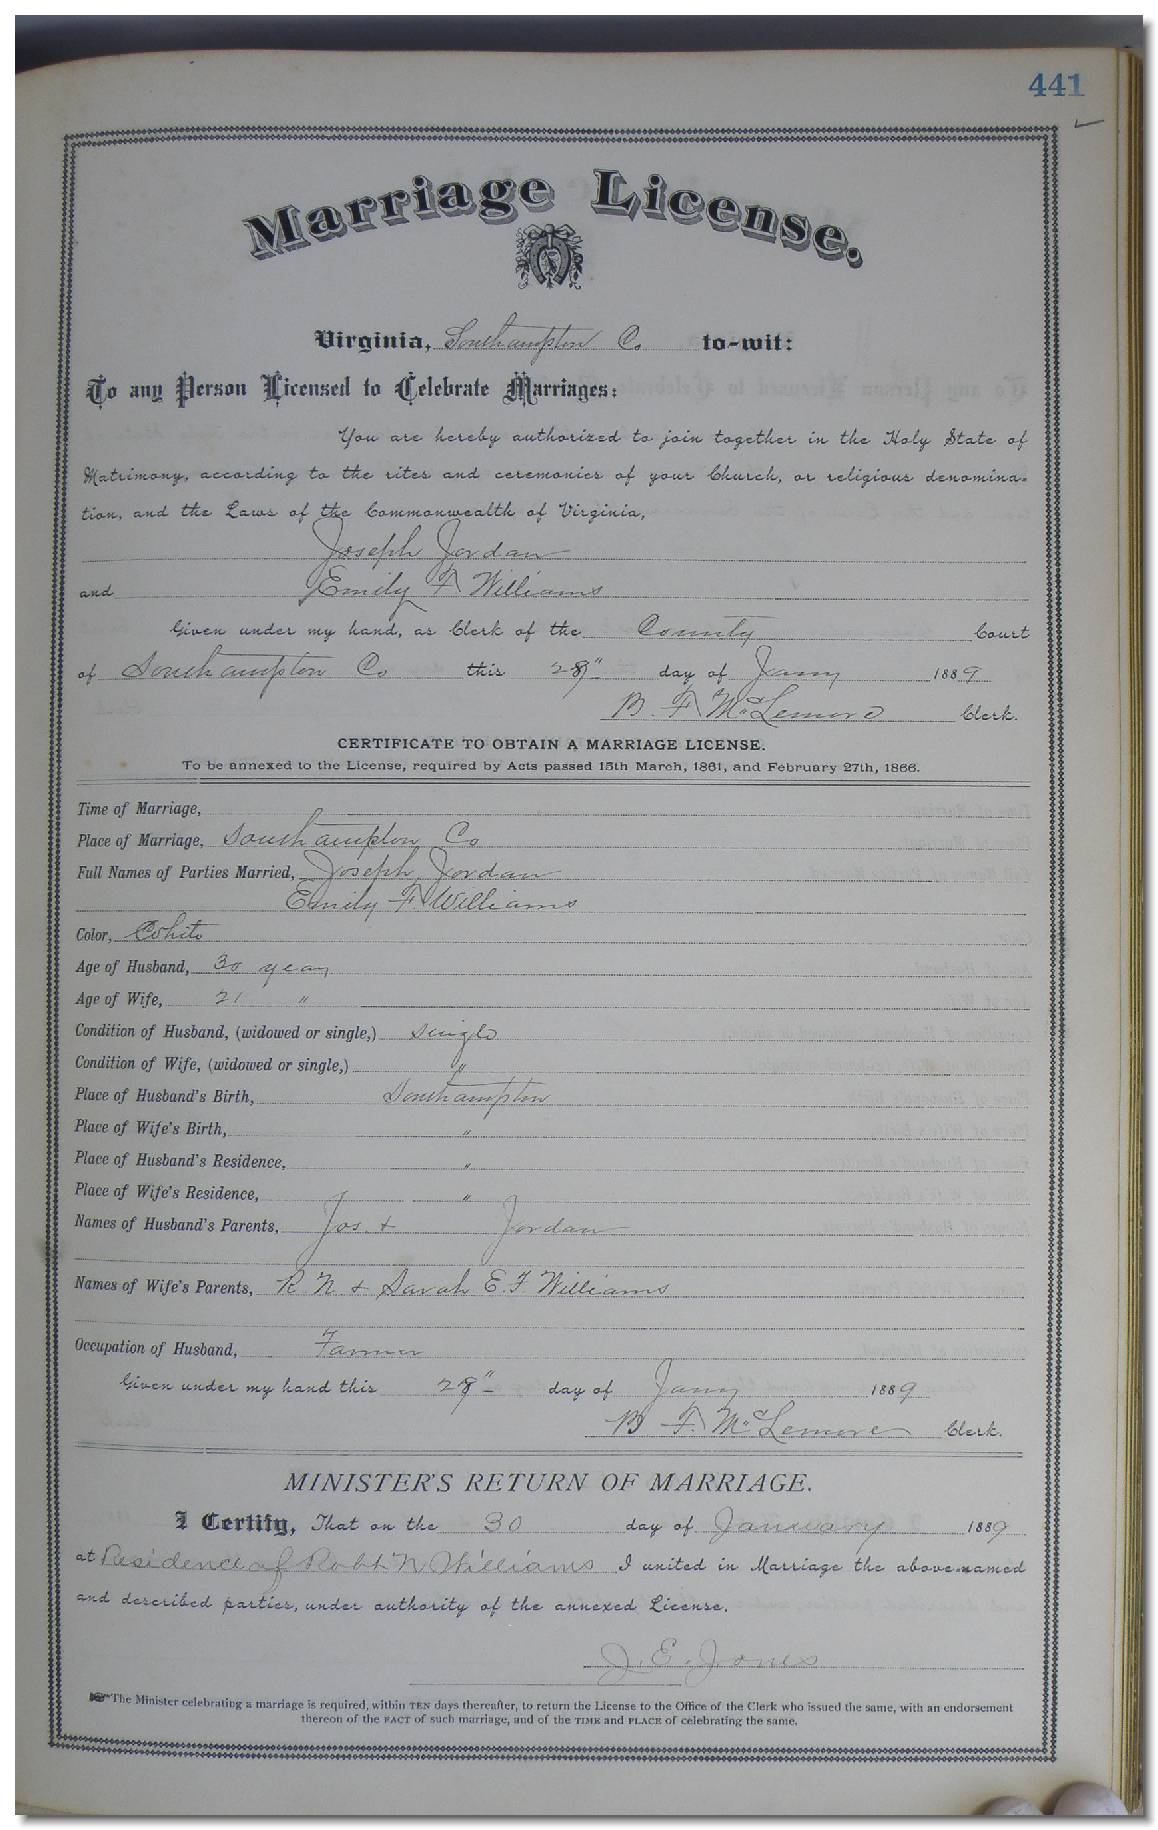 441
Marriage License.
Virginia, Southampton Co to-wit:
To any Person Licensed to Celebrate Marriages:
You are hereby authorized to join together in the Holy State of
Matrimony, according to the rites and ceremonies of your Church, or religious denomina-
tion, and the Laws of the Commonwealth of Virginia,
Joseph Jordan
and Emily F Williams
Given under my hand, as Clerk of the County Court
of Southampton Co this 28" day of Jany 1889
B. F. McLemore Clerk.
CERTIFICATE TO OBTAIN A MARRIAGE LICENSE.
To be annexed to the License, required by Acts passed 15th March, 1861, and February 27th, 1866.
Time of Marriage,
Place of Marriage, Southampton Co
Full Names of Parties Married, Joseph Jordan
Emily F. Williams
Color, White
Age of Husband, 30 years
Age of Wife, 21 "
Condition of Husband, (widowed or single,) single
Condition of Wife, (widowed or single,) "
Place of Husband's Birth, Southampton
Place of Wife's Birth, "
Place of Husband's Residence, "
Place of Wife's Residence, "
Names of Husband's Parents, Jos. + Jordan
Names of Wife's Parents, R. N. + Sarah E. F. Williams
Occupation of Husband, Farmer
Given under my hand this 28" day of Jany 1889
B F. McLemore Clerk.
MINISTER'S RETURN OF MARRIAGE.
I Certify, That on the 30 day of January 1889
at Residence of Robt N Williams I united in Marriage the above-named
and described parties, under authority of the annexed License.
J. E. Jones
The Minister celebrating a marriage is required, within TEN days thereafter, to return the License to the Office of the Clerk who issued the same, with an endorsement
thereon of the FACT of such marriage, and of the TIME and PLACE of celebrating the same.